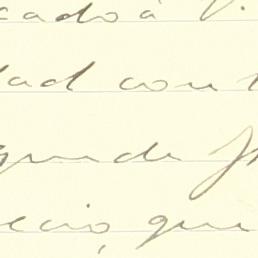 cado á V.
dad con t
quede
ecio, que